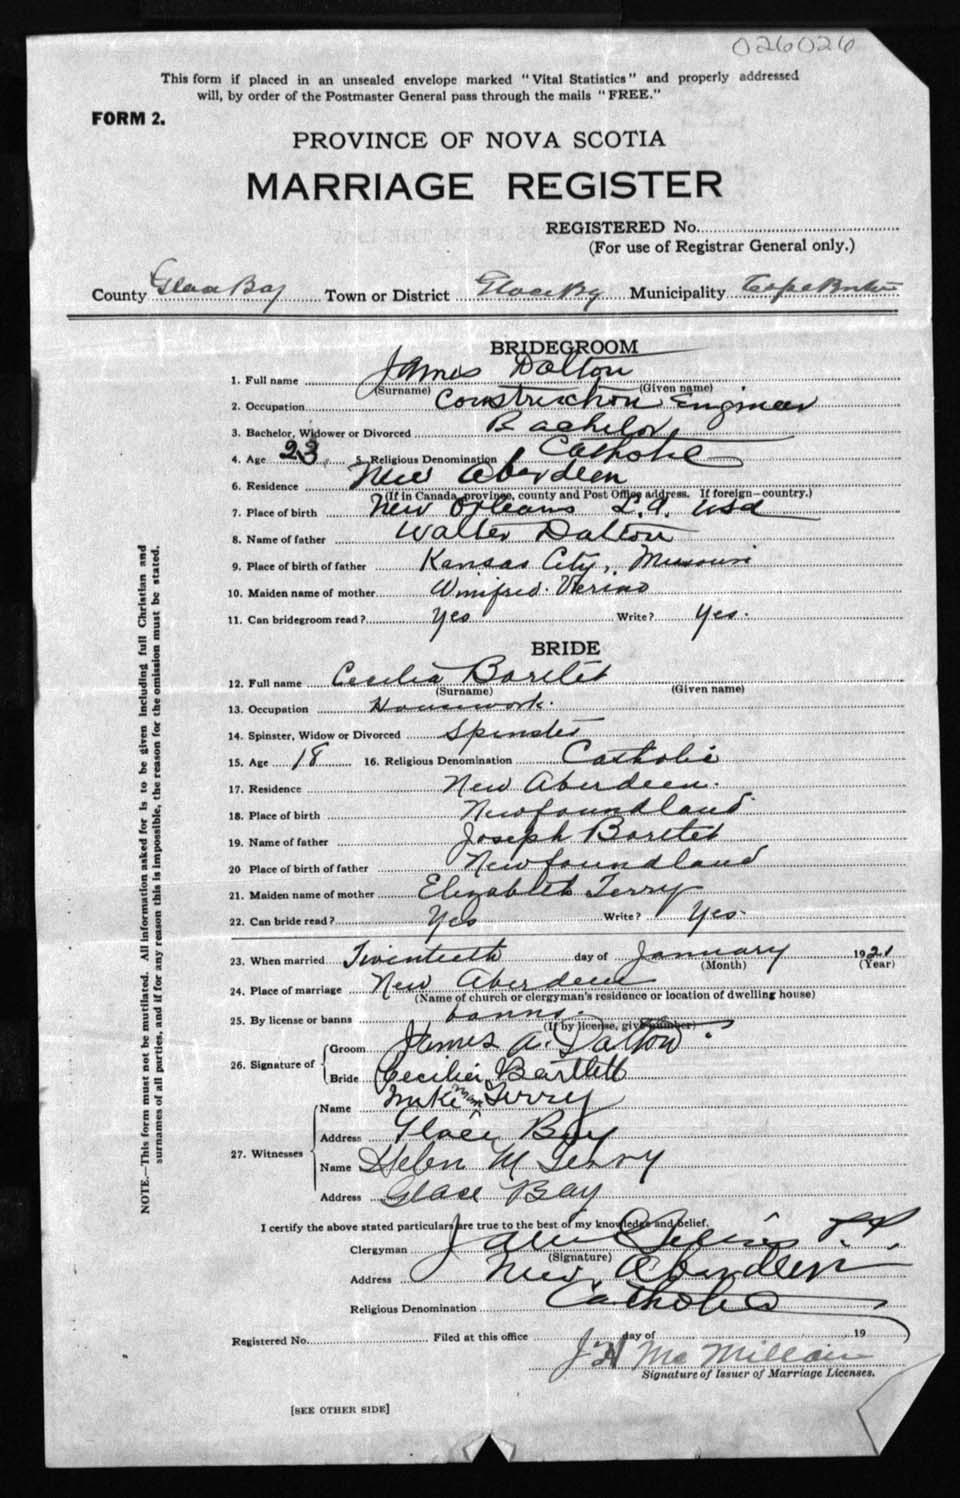 026026
This form if placed in an unsealed envelope marked "Vital Statistics" and properly addressed
will, by order of the Postmaster General pass through the mails "FREE."
FORM 2.
PROVINCE OF NOVA SCOTIA
MARRIAGE REGISTER
REGISTERED No.
(For use of Registrar General only.)
County Glace Bay Town or District Glace Bay Municipality Cape Breton
BRIDEGROOM
1. Full name James Dalton
(Surname) (Given name)
2. Occupation Construction Engineer
3. Bachelor, Widower or Divorced Bachelor
4. Age 23 5. Religious Denomination Catholic
6. Residence New Aberdeen
(If in Canada, province, county and Post Office address. If foreign—country.)
7. Place of birth New Orleans L.A. USA
8. Name of father Walter Dalton
9. Place of birth of father Kansas City, Missouri
10. Maiden name of mother Winifred
11. Can bridegroom read? Yes Write? Yes.
BRIDE
12. Full name Cecilia Bartlet
(Surname) (Given name)
13. Occupation Housework.
14. Spinster, Widow or Divorced Spinster
15. Age 18 16. Religious Denomination Catholic
17. Residence New Aberdeen.
18. Place of birth Newfoundland
19. Name of father Joseph Bartlet
20 Place of birth of father Newfoundland
21. Maiden name of mother Elizabeth Terry
22. Can bride read? Yes Write? Yes.
23. When married Twintieth day of January 1921
(Month) (Year)
24. Place of marriage New Aberdeen
(Name of church or clergyman's residence or location of dwelling house)
25. By license or banns banns.
(If by license, give number)
26. Signature of Groom James A. Dalton
Bride Cecilia Bartlett
27. Witnesses Name Mike Terry
Address Glace Bay
Name Helen M Terry
Address Glace Bay
I certify the above stated particulars are true to the best of my knowledge and belief.
Clergyman P.P.
(Signature)
Address New Aberdeen
Religious Denomination Catholic
Registered No. Filed at this office day of 19
J H McMillan
Signature of Issuer of Marriage Licenses.
[SEE OTHER SIDE]
NOTE.—This form must not be mutilated. All information asked for is to be given including full Christian and
surnames of all parties, and if for any reason this is impossible, the reason for the omission must be stated.